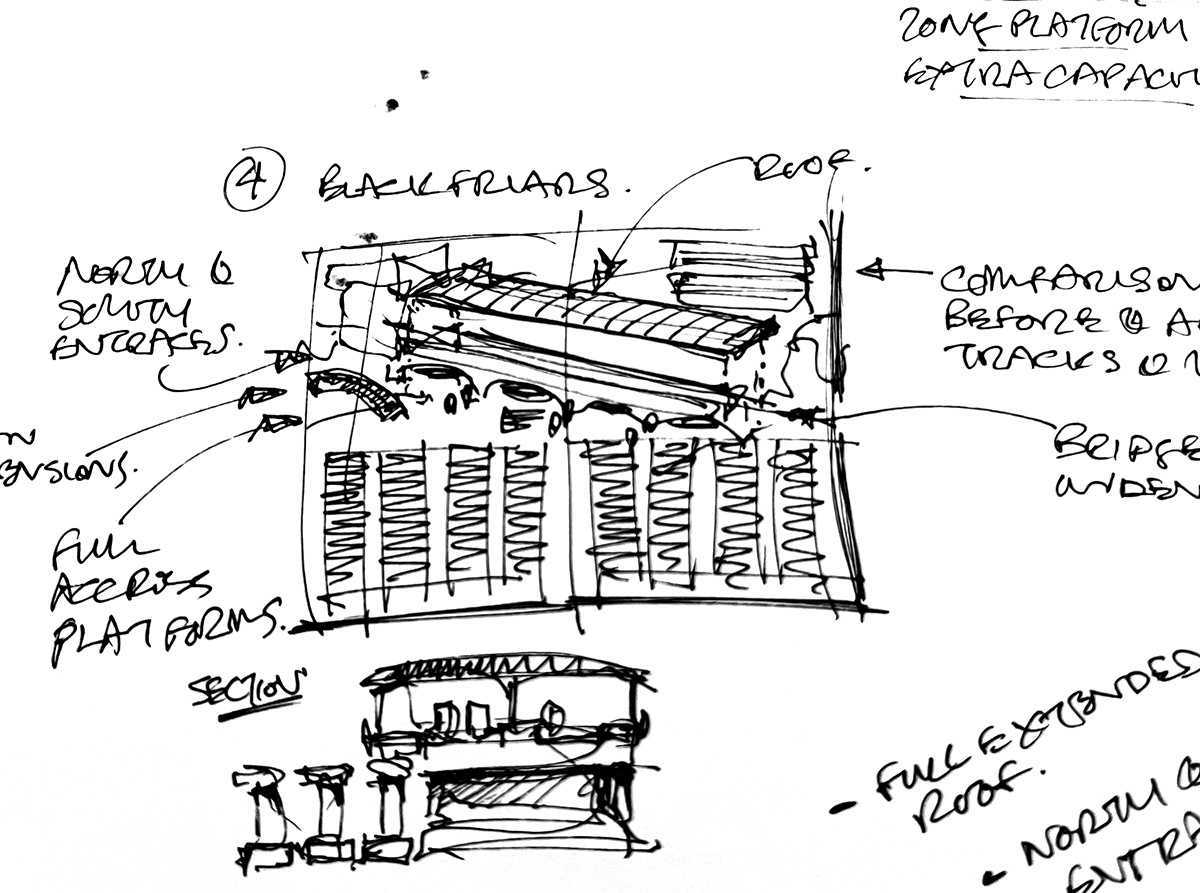 ZONE PLATFORM
EXTRA CAPACIT
4 BLACKFRIARS.
ROOF.
NORTH &
SOUTH
ENTRACES.
COMPARISON
BEFORE & A
TRACKS &
ENSIONS.
BRIDGE
WIDEN
FULL
ACCROSS
PLATFORMS.
SECTION
- FULL EXTENDED
ROOF.
- NORTH &
ENTRA